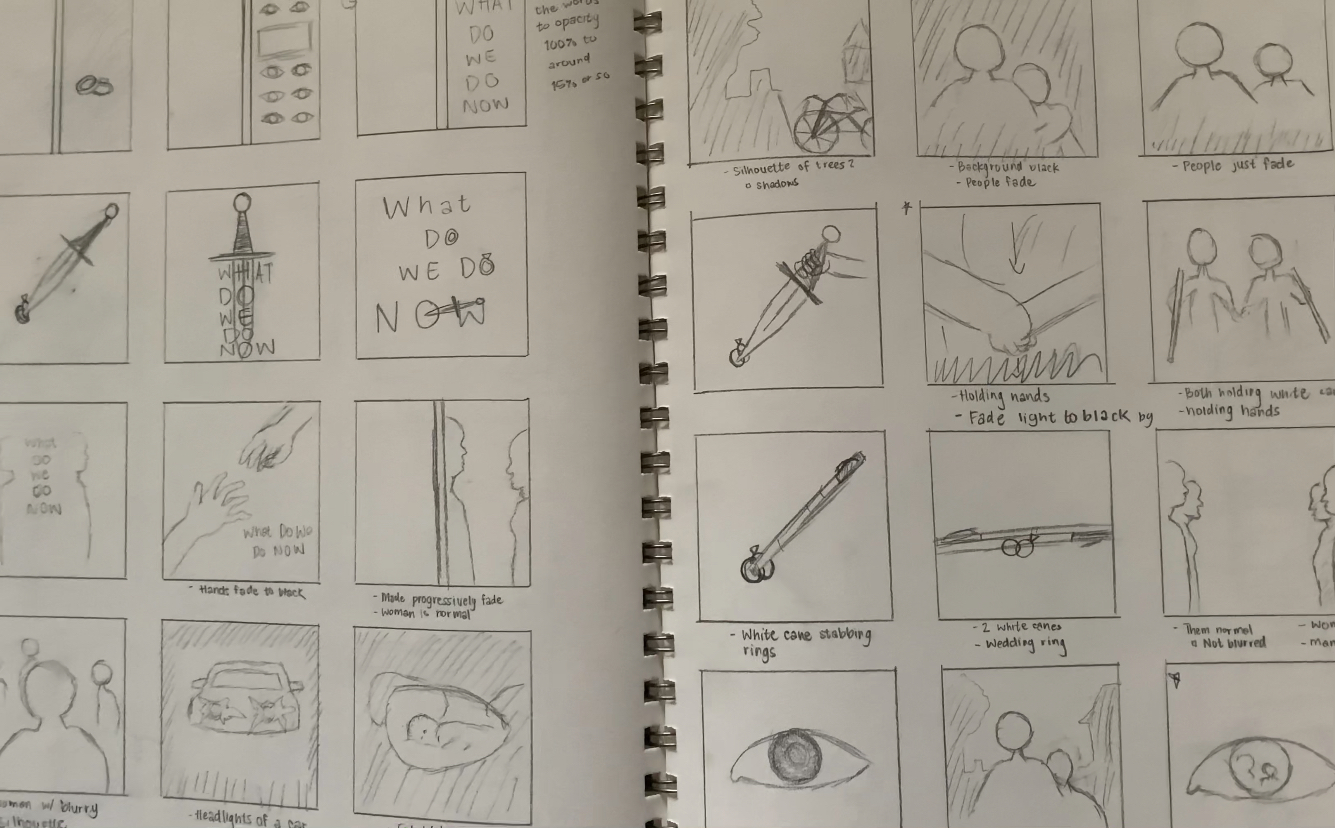 WHAT
DO
WE
DO
NOW
the words
to opacity
100% to
around
15% or so
WHAT
DO
WE
DO
NOW
What
DO
WE DO
NOW
What
DO
we
DO
NOW
What Do We
Do NOW
- Hands fade to black
- Male progressively fade
- woman is normal
w/ blurry
silhouette
- Headlights of a car
- Silhouette of trees?
shadows
- Background black
- People fade
- People just fade
- Holding hands
- Fade light to black by
- Both holding white
- holding hands
- White cane stabbing
rings
- 2 white canes
- Wedding ring
- Them normal
Not blurred